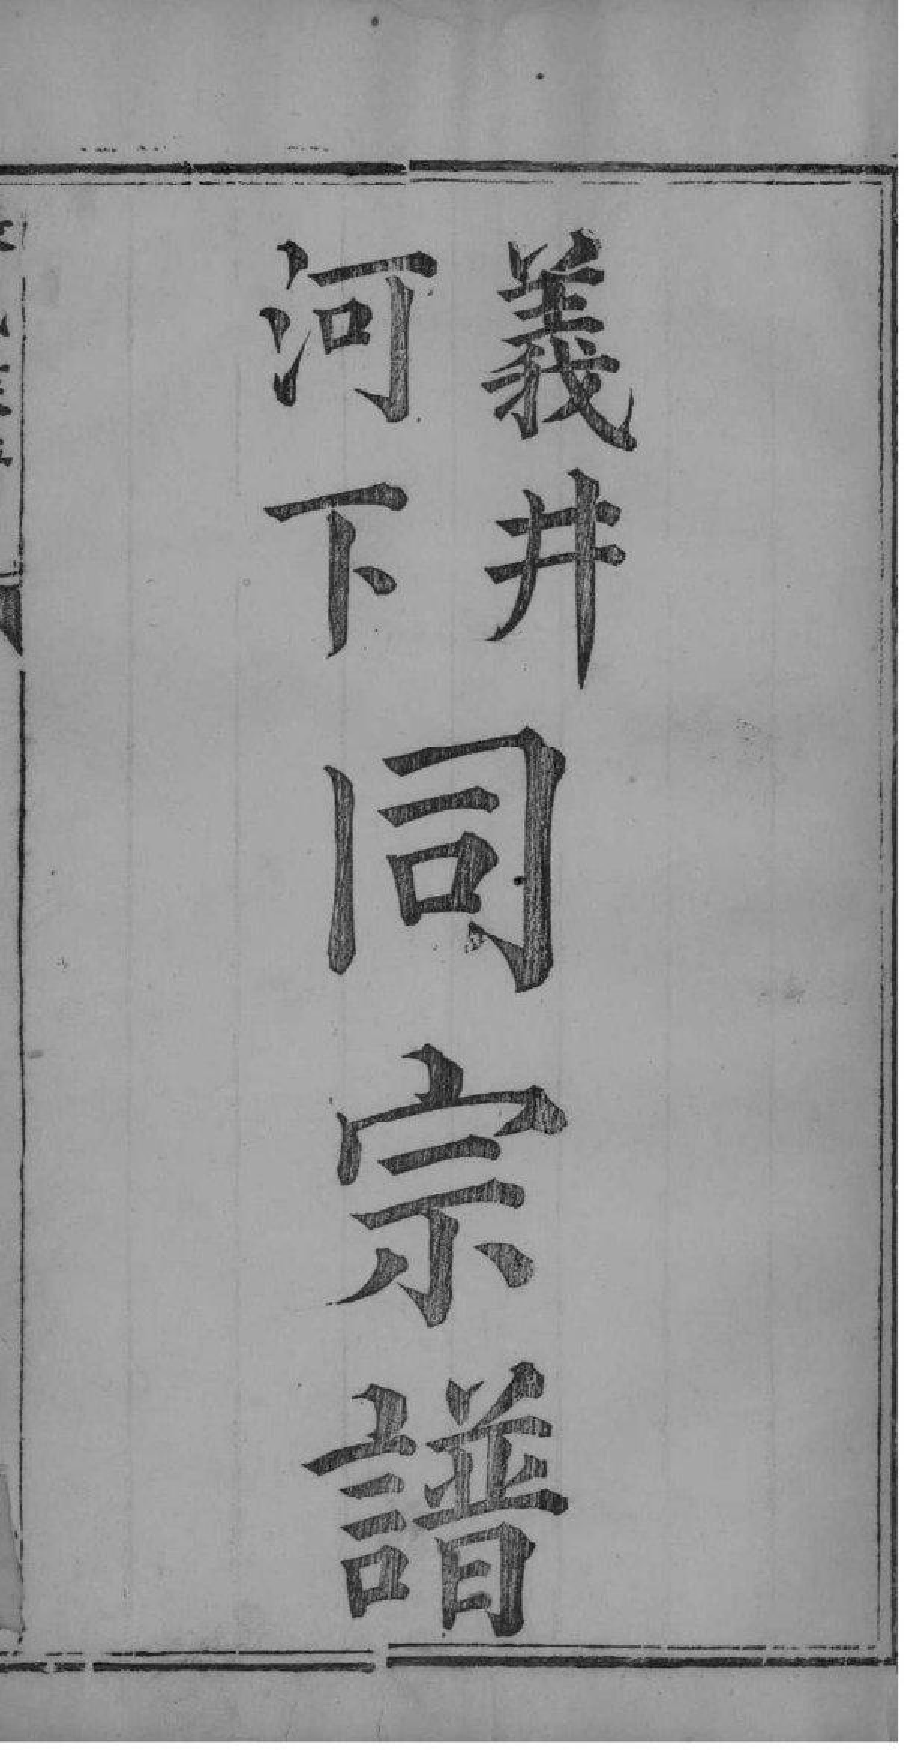 義井
河下
同宗譜